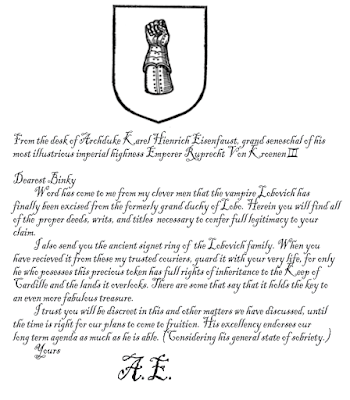 From the desk of Archduke Karol Hienrich Eisenfaust, grand seneschal of his
most illustrious imperial highness Emperor Ruprecht Von Kroenen III
Dearest Binky
Word has come to me from my clever men that the vampire Lobovich has
finally been excised from the formerly grand duchy of Lobo. Herein you will find all
of the proper deeds, writs, and titles necessary to confer full legitimacy to your
claim.
I also send you the ancient signet ring of the Lobovich family. When you
have recieved it from these my trusted couriers, guard it with your very life, for only
he who possesses this precious token has full rights of inheritance to the Keep of
Cardille and the lands it overlooks. There are some that say that it holds the key to
an even more fabulous treasure.
I trust you will be discreet in this and other matters we have discussed, until
the time is right for our plans to come to fruition. His excellency endorses our
long term agenda as much as he is able. (Considering his general state of sobriety.)
Yours
A.E.